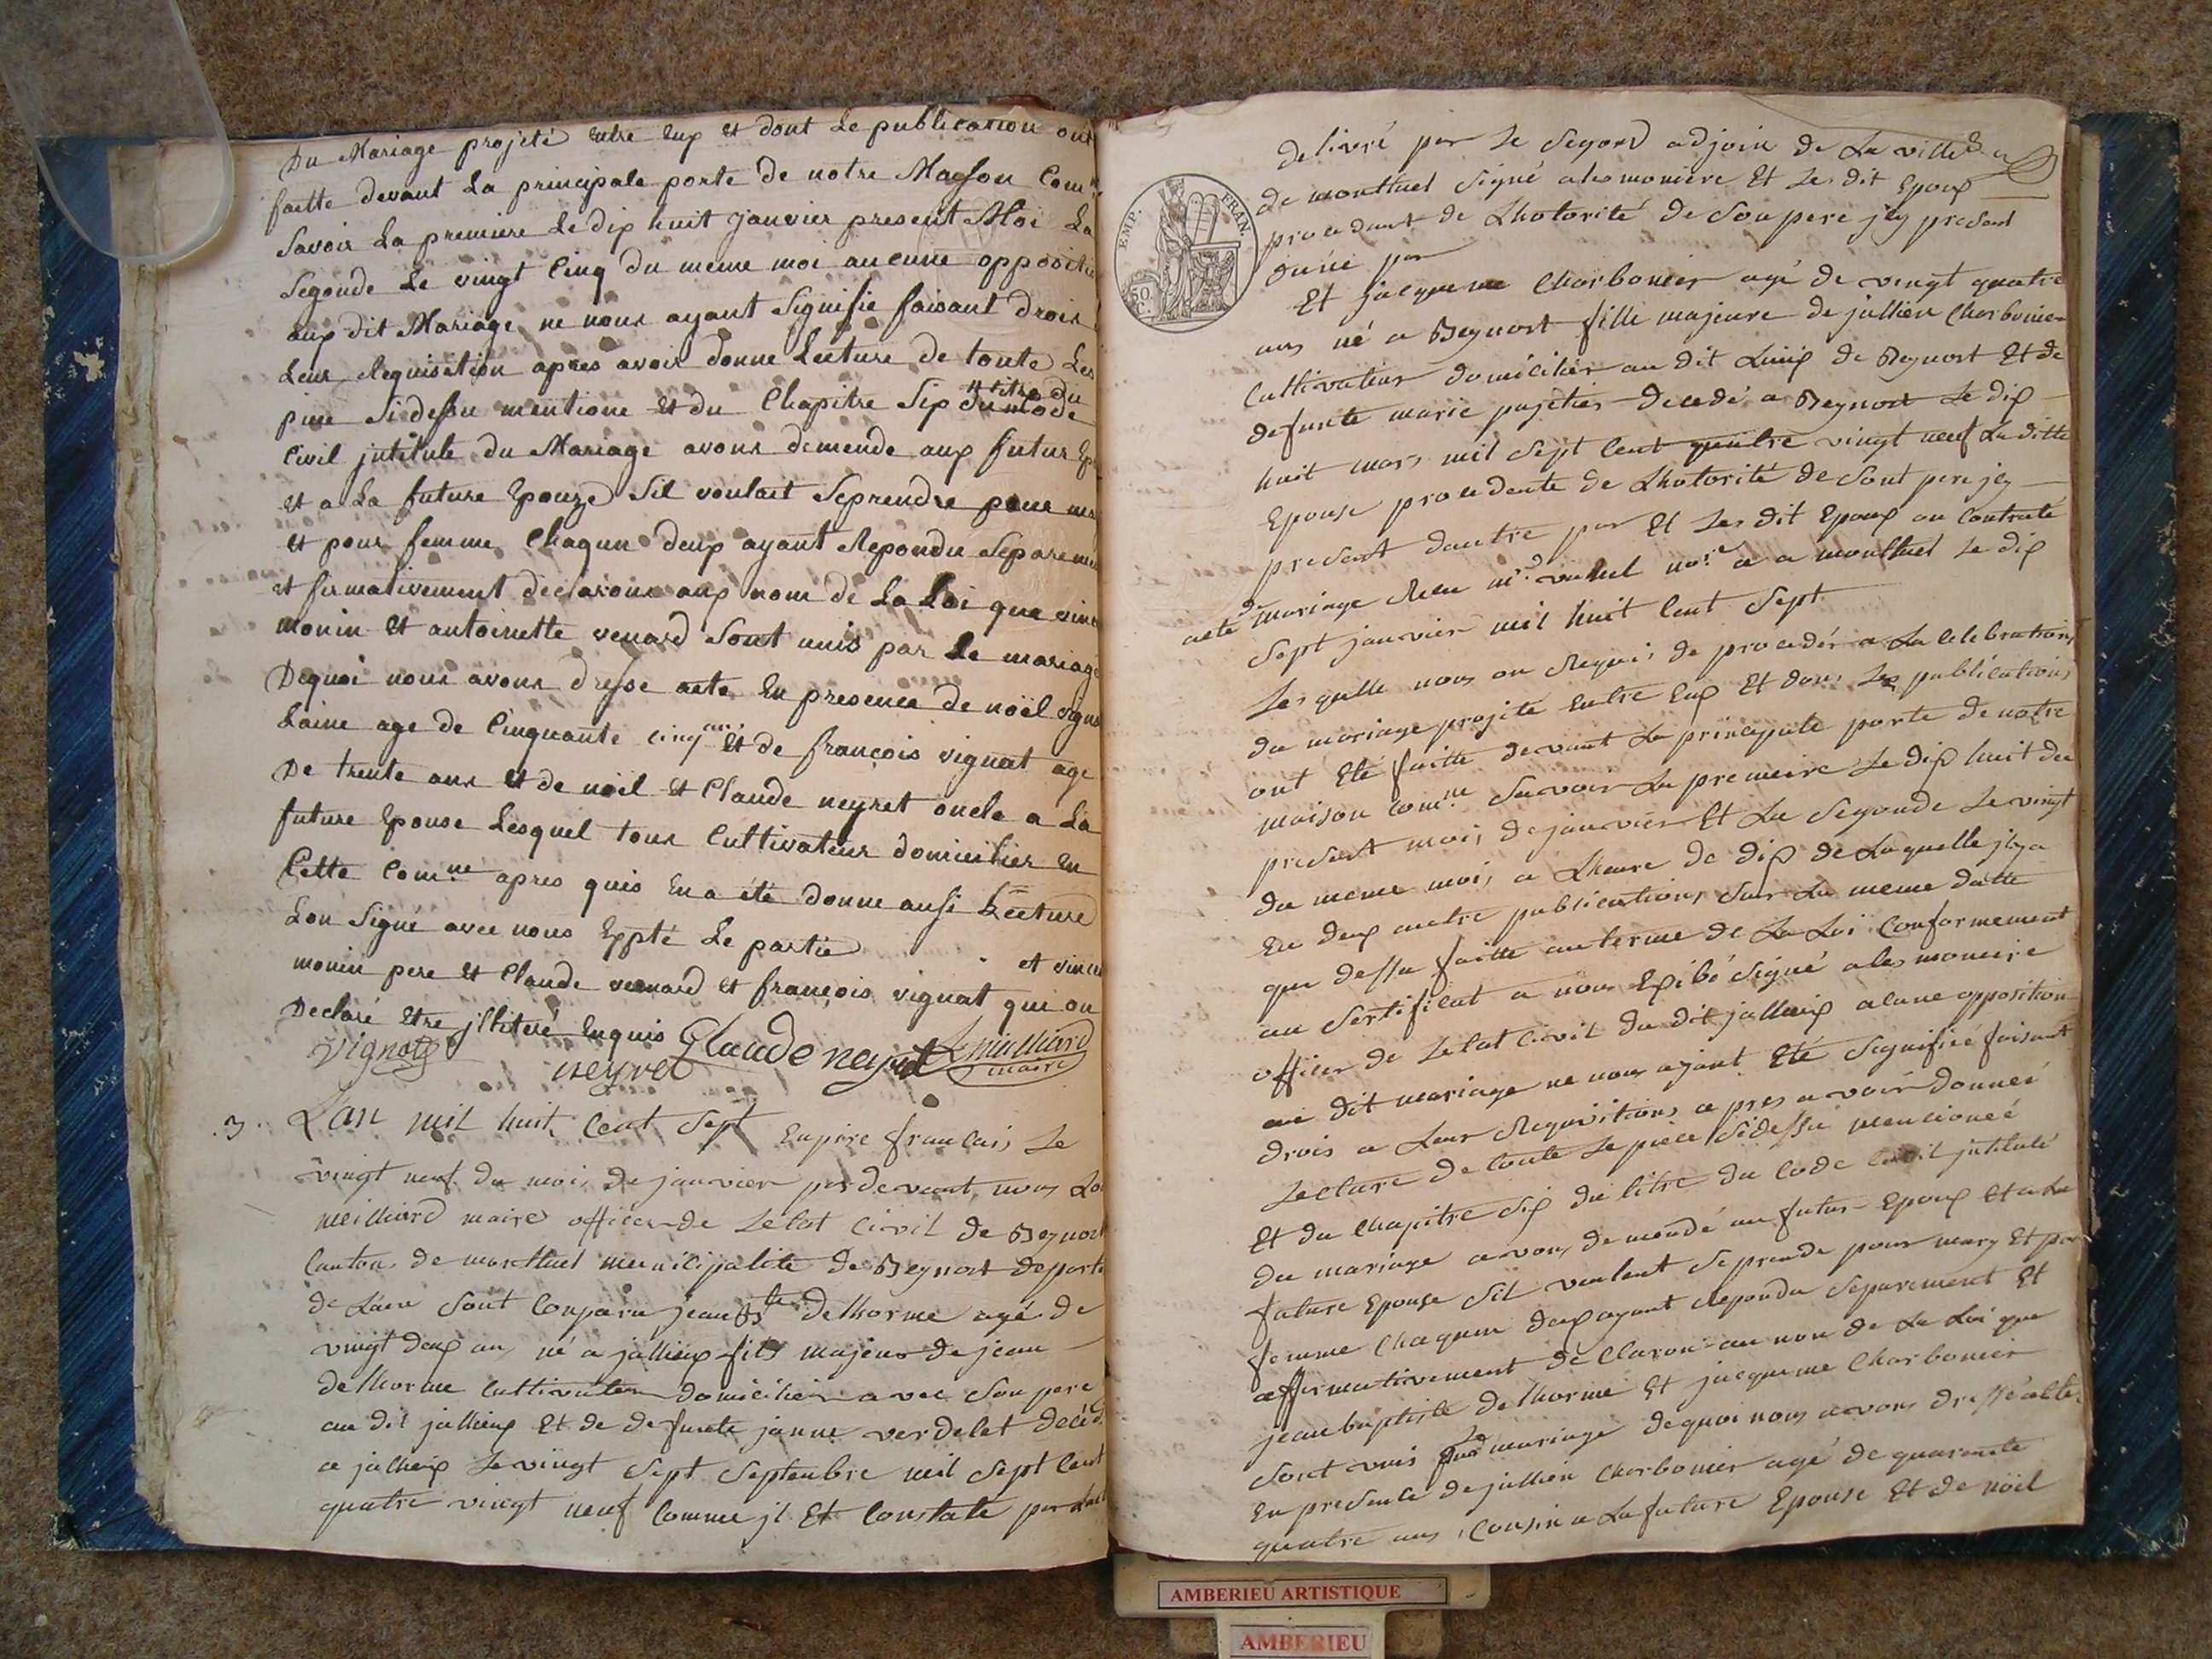 Du Mariage projeté Entre Eux et dont Le publication ont
faitte devant La principale porte de notre Maison Com.ne
Savoir La premiere Le dix huit janvier present Moi La
Segonde Le vingt Cinq du meme moi aucune oppositio
aux dit Mariage ne nous ayant Signifie faisant droit
Leur Requisition apres avoir donne Lecture de toute Les
piese Si dessu mentione et du Chapitre Six du titre du Code
Civil jntitule du Mariage avons demende aux futur Ep
et a La future Epouze Sil voulait Seprendre pour mar
et pour femme Chaqun deux ayant Repondu Separemen
et firmativement declarons aux nom de La Loi que vince
monin et antoinette venard Sont unis par Le mariage
Dequoi nous avons dresse acte En presence de noël vigna
Laine age de Cinquante cinq ans et de françois vignat age
De trente ans et de noël et Claude neyret oncle a La
future Epouse Lesquel tous Cultivateur domicilier En
Cette Com.ne apres quis En a été donne ausi Lecture
Lon Signé avec nous Expté Le partie
et vincen
monin pere et Claude venard et françois vignat qui on
Declaré Etre jlliteré Enquis
vignat neyret Claude neyret L. meilliard
maire
3. L'an mil huit Cent Sept Enpire francais Le
vingt neuf du mois de janvier par devant nous Lo
meilliard maire officer de Letat Civil de Beynost
Canton de montluel municipalite de Beynost departe
de Laen Sont Conparu jean Bte delhorme agé de
vingt deux ans né a jallieux fils majeur de jean
delhorme Cultivateur domicilier avec Son pere
au dit jallieux Et de defunte janne verdelet decéd
a jallieux Le vingt Sept Septenbre mil Sept Cent
quatre vingt neuf Comme jl Et Constate par Lact
delivré par Le Segond adjoin de La ville
de montluel Signé alesmoniere Et Les dit Epoux
procedant de Lhotorité de Son pere jcy present
duné par
Et jacqueme Charbonier agé de vingt quatre
ans né a Beynost fille majeure de jullien Charbonier
Cultivateur domicilier au dit Lieux de Beynost Et de
defunte marie pujetier decedé a Beynost Le dix
huit mars mil Sept Cent quatre vingt neuf La ditte
Epouse procedente de Lhotorité de Sont pere jcy
present dautre par Et Les dit Epoux on Contracté
acte de mariage Reçu me no.re a a montluel Le dix
Sept janvier mil huit Cent Sept
Les quelle nous on Requis de proceder a La Celebration
du mariage projité Entre Eux Et dons Les publications
ont Eté faitte devant La principale porte de notre
maison Com.ne Savoir La premeire Le dix huit du
present mois de janvier Et La Segonde Le vingt
du meme mois a Lheure de dix de Laquelle jlya
Eu deux autre publications Sur La meme datte
que dessu faitte au terme de La Loi Conformement
au Sertificat a nous Exibé Signé ales moneire
officer de Letat Civil du dit jallieux aucune opposition
au dit mariage ne nous ayant Eté Signifiée faisant
drois a Leur Requisitions apres avoir donneé
Lecture de toute Le piece Sidessu mencioneé
Et du Chapitre Six du titre du Code Civil jntitulé
du mariage avons demendé au futur Epoux Et a La
future Epouse Sil veulent Se prende pour mary Et pour
femme Chaqun deux ayant Repondu Separement Et
affirmativement declarons au non de La Loi que
jean baptiste delhorme Et jacqueme Charbonier
Sont unis mariage dequoi nous avons dressé acte
En presence de jullien Charbonier agé de quarante
quatre ans Cousin a La future Epouse Et de noël
EMP. FRAN.
50 C.
AMBERIEU ARTISTIQUE
AMBERIEU